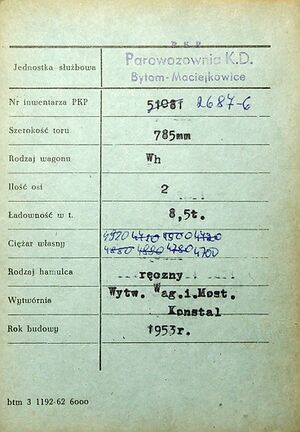 PKP
Parowozownia K.D.
Jednostka służbowa
Bytom-Maciejkowice
Nr inwentarza PKP 51081 2687-6
Szerokość toru 785mm
Rodzaj wagonu Wh
Ilość osi 2
Ładowność w t. 8,5t.
4920 4710 4900 4720
Ciężar własny
4850 4890 4780 4700
Rodzaj hamulca ręczny
Wytw. Wag.i.Most.
Wytwórnia
Konstal
Rok budowy 1953r.
btm 3 1192-62 6000